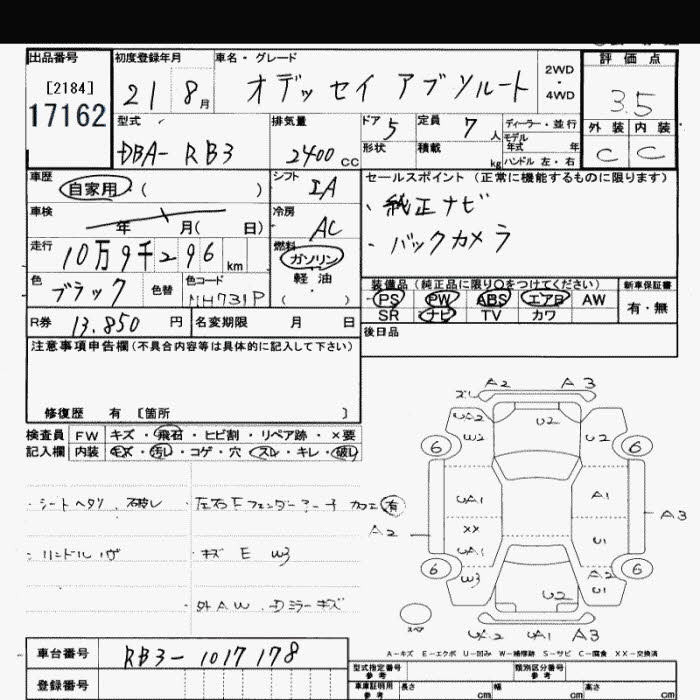 出品番号 初度登録年月 車名・グレード 評価点
[2184] 21 8月 オデッセイ アブソルート 2WD・4WD 3.5
17162
型式 排気量 ドア 5 定員 7人 ディーラー・並行 外装 内装
DBA-RB3 2400cc 形状 積載 kg モデル年式 年 ハンドル 左・右 C C
車歴 シフト セールスポイント(正常に機能するものに限ります)
自家用 ( ) IA ・純正ナビ
車検 年 月( 日) 冷房 AC ・バックカメラ
走行 10万9千296 km 燃料 ガソリン
軽油
色 ブラック 色替 色コード NH731P ( ) 装備品(純正品に限り○をつけてください) 新車保証書
PS PW ABS エアB AW 有・無
R券 13.850 円 名変期限 月 日 SR ナビ TV カワ
注意事項申告欄(不具合内容等は具体的に記入して下さい) 後日品
修復歴 有 [箇所 ]
検査員 FW キズ・飛石・ヒビ割・リペア跡・×要
記入欄 内装 キズ・汚レ・コゲ・穴・スレ・キレ・破レ
・シートヘタリ、破レ ・左右Fフェンダーアーチ カエ有
・ハンドルハゲ キズ E W3
・外AW、Dミラーキズ
A2 A3
UA2 U2 U2
W2
6 6
UA1 A1
A2 XX A3
UA1 U1
6 6
W3 A2
U2 U1
スペア
UA2 UA1 A3
A-キズ E-エクボ U-凹み W-補修跡 S-サビ C-腐食 XX-交換済
車台番号 RB3-1017178 型式指定番号 参考 類別区分番号 参考
登録番号 車庫証明用 参考 長さ cm 幅 cm 高さ cm